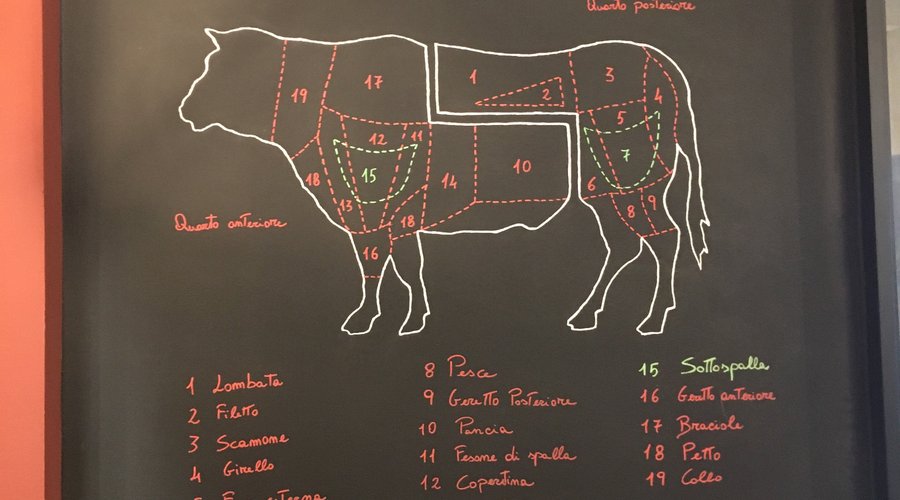 Quarto posteriore
1
2
3
4
5
6
7
8
9
10
11
12
13
14
15
16
17
18
18
19
Quarto anteriore
1 Lombata
2 Filetto
3 Scamone
4 Girello
8 Pesce
9 Geretto Posteriore
10 Pancia
11 Fesone di spalla
12 Copertina
15 Sottospalla
16 Geretto anteriore
17 Braciole
18 Petto
19 Collo